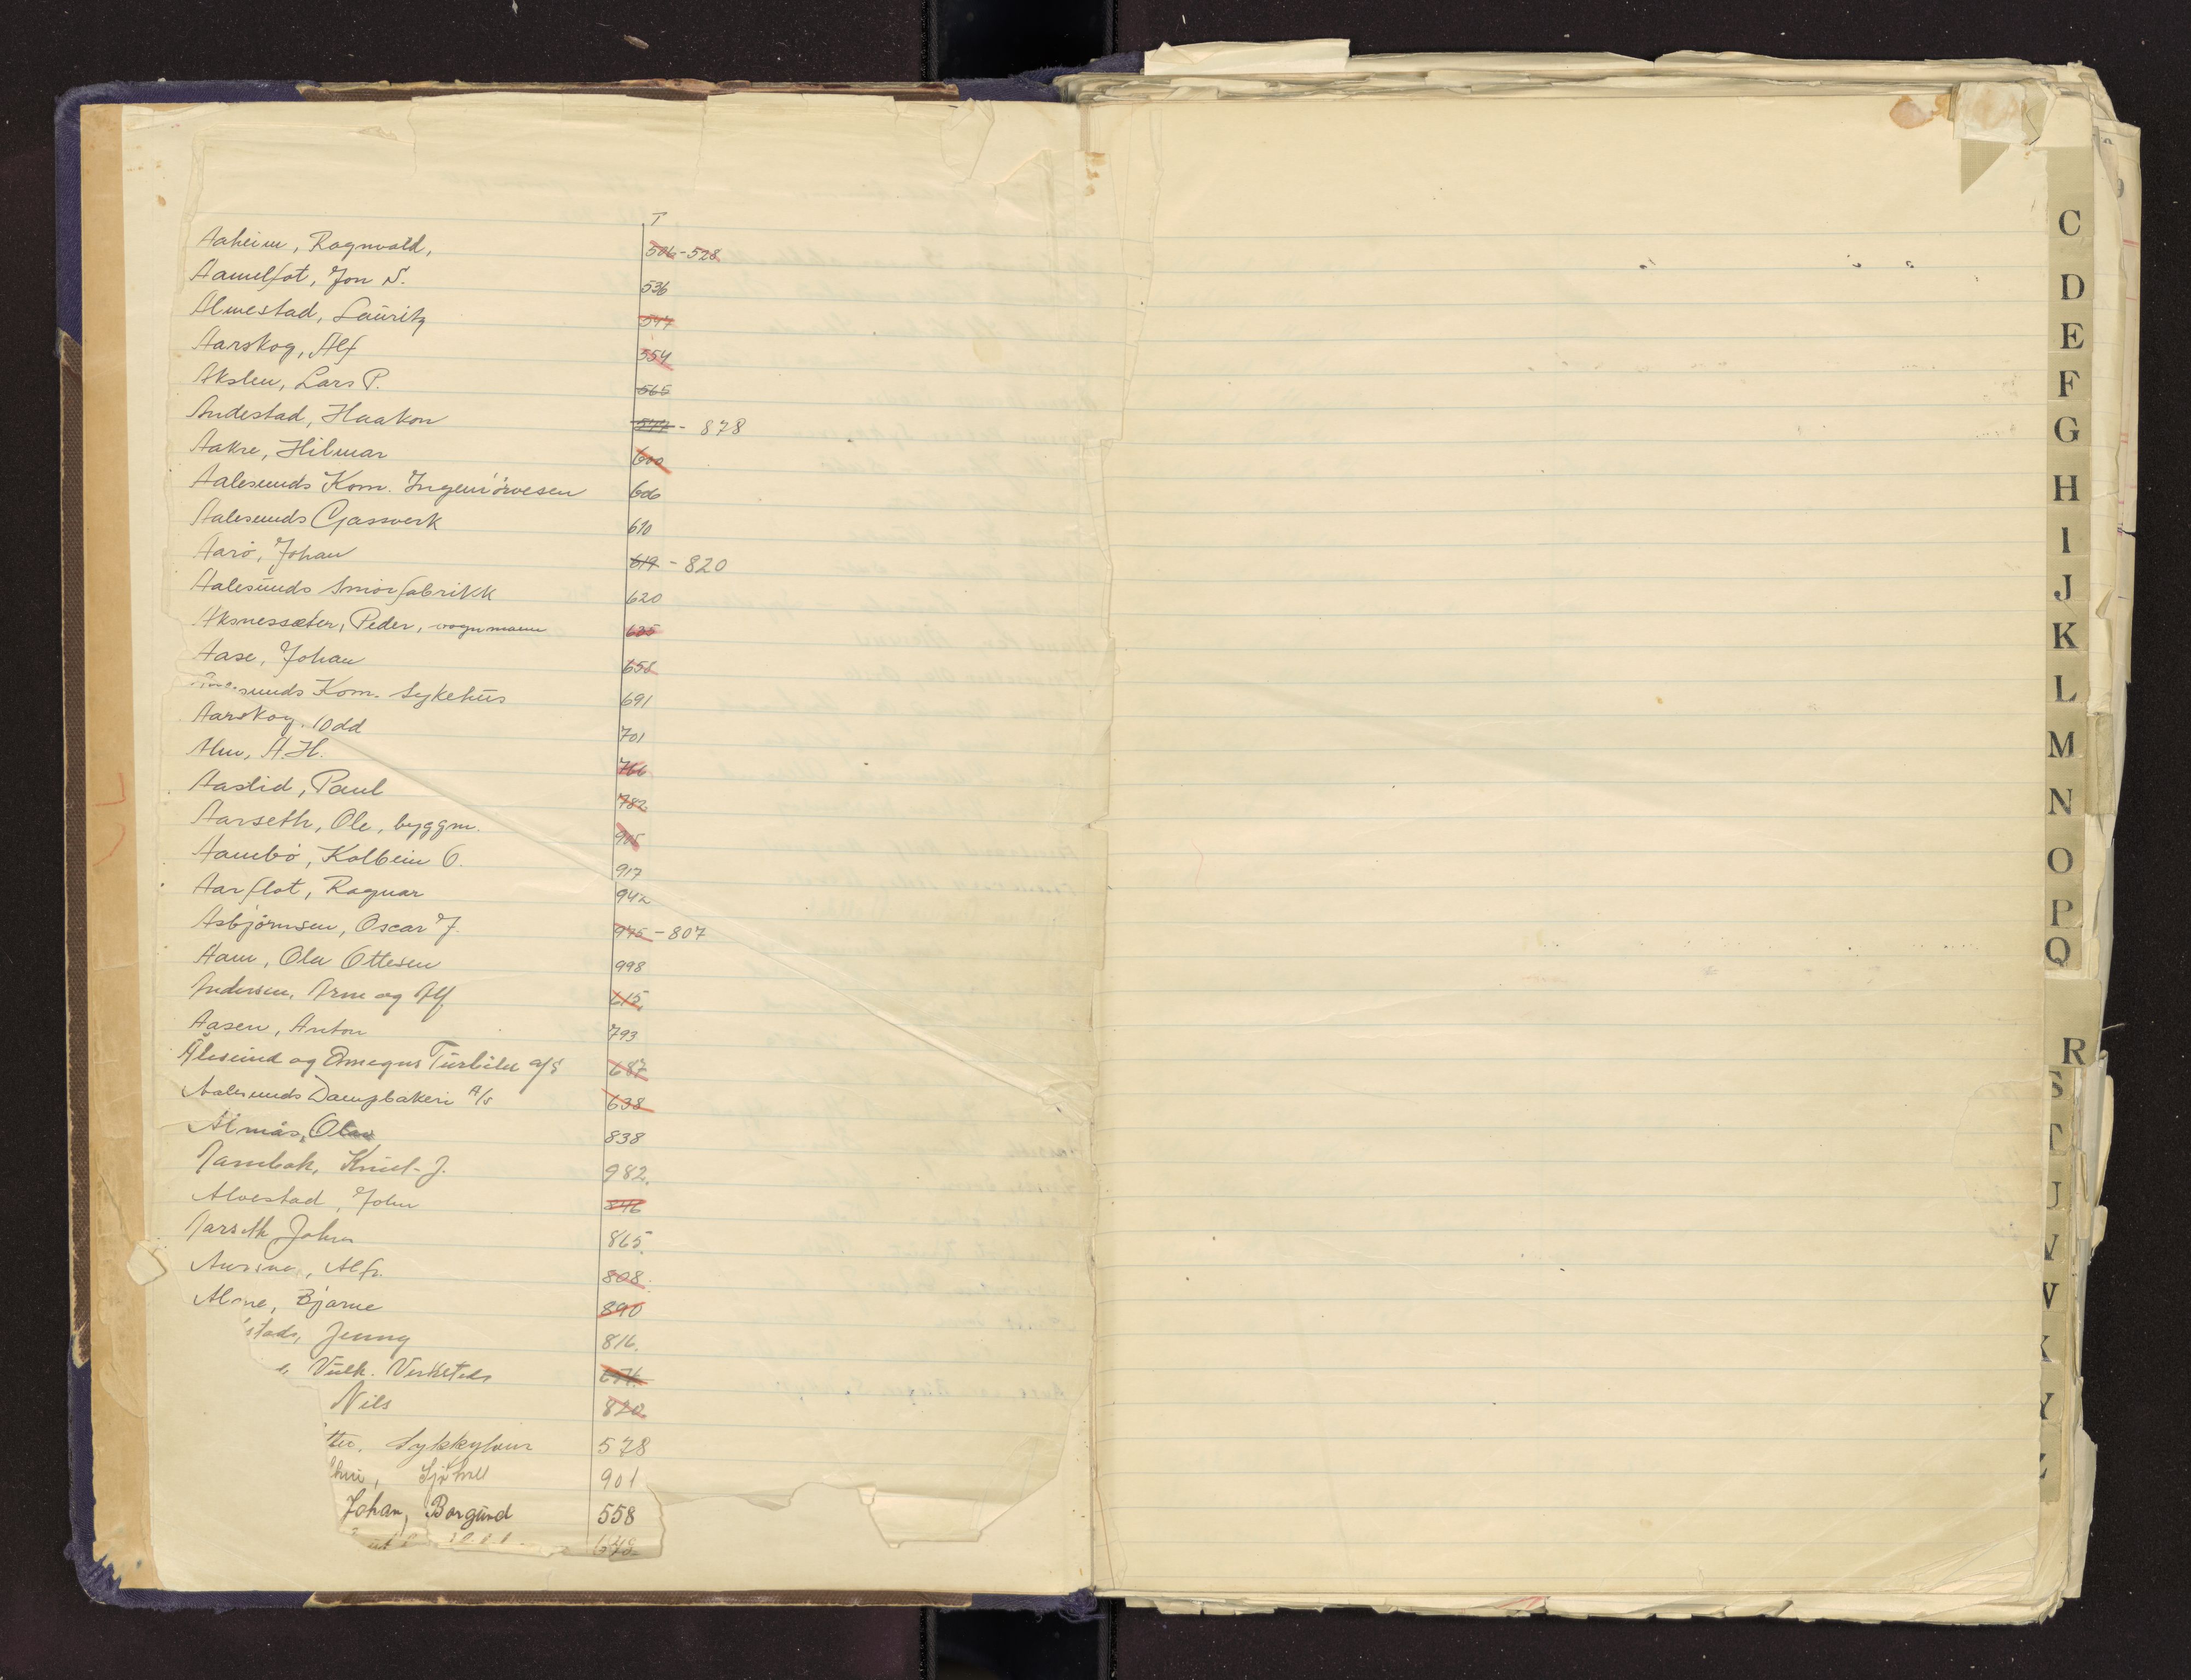 T
Aaheim, Ragnvald, 506 - 528
Aamelfot, Jon S. 536
Almestad, Lauritz 547
Aarskog, Alf 554
Akslen, Lars P. 565
Andestad, Haakon 577 - 878
Aakre, Hilmar 600
Aalesunds Kom. Ingeniørvesen 606
Aalesunds Gassverk 610
Aarø, Johan 619 - 820
Aalesunds Smørfabrikk 620
Aksnessæter, Peder, vognmann 635
Aase, Johan 658
sunds Kom. Sykehus 691
Aarskog, Odd 701
Alm, A.H. 766
Aaslid, Paul 782
Aarseth, Ole, byggm. 905
Aambø, Kolbein O. 917
Aarflot, Ragnar 942
Asbjørnsen, Oscar J. 975 - 807
Aam, Ola Ottesen 998
Andersen, Arne og Alf 615
Aasen, Anton 793
Ålesund og Omegns Turbiler a/s 687
Aalesunds Dampbakeri A/s 638
Almås, Olav 838
Aambak, Knut J. 982.
Alvestad, John 846
Aarseth Johan 865.
Alfr. 808.
Alme, Bjarne 890
stads, Jenny 816.
Vulk. Verksteds 674.
Nils 820
Sykkylven 578
Sjøholt 901
Johan, Borgund 558
678
C
D
E
F
G
H
I
J
K
L
M
N
O
P
Q
R
S
T
U
V
W
X
Y
Z